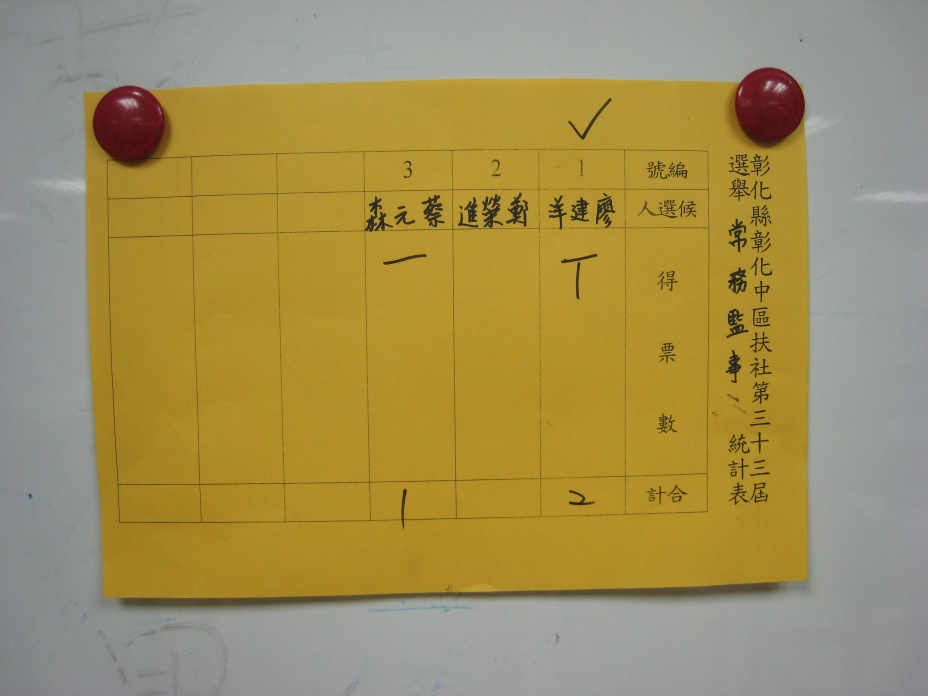 彰化縣彰化中區扶社第三十三屆
選舉常務監事、統計表
編號 1 2 3
候選人 廖建羊 鄭榮進 蔡元森
得票數 丅 一
合計 2 1